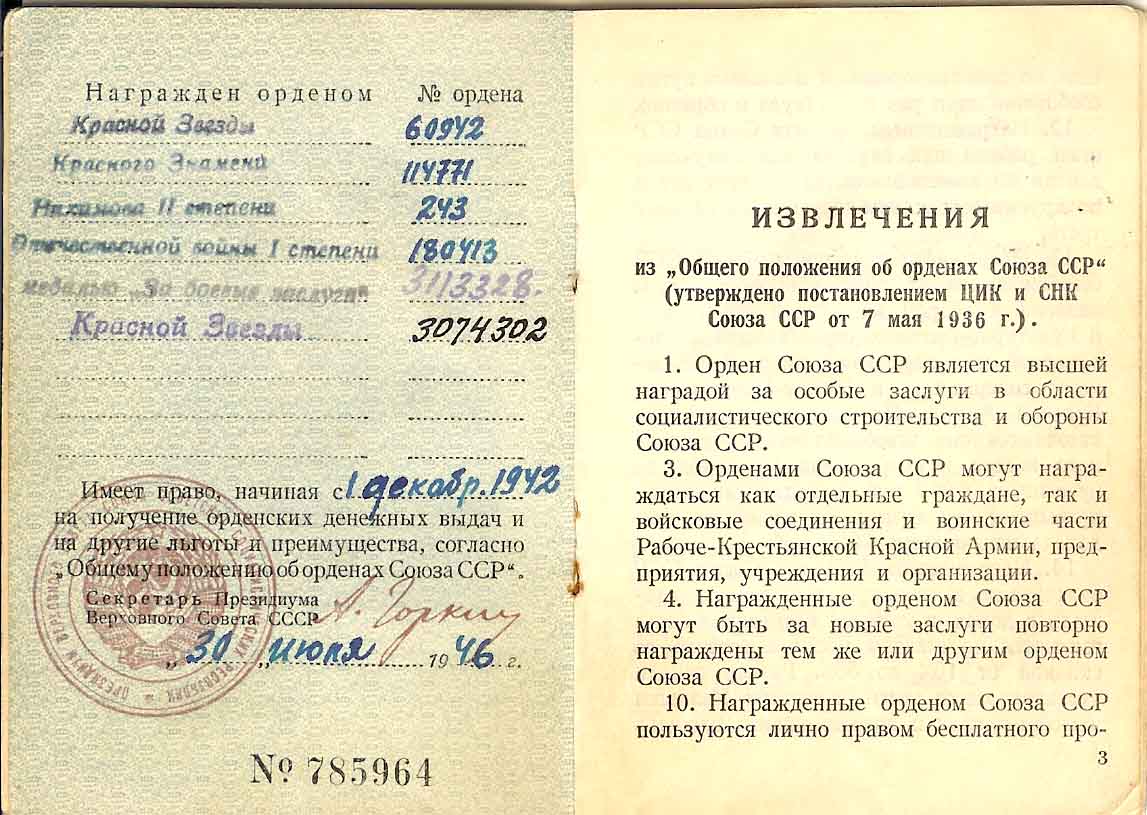 Награжден орденом № ордена
Красной Звезды 60942
Красного Знамени 114771
Нахимова II степени 243
Отечественной войны I степени 180413
медалью „За боевые заслуги“ 3113328.
Красной Звезды 3074302
Имеет право, начиная с 1 декабр. 1942
на получение орденских денежных выдач и
на другие льготы и преимущества, согласно
„Общему положению об орденах Союза ССР“.
Секретарь Президиума
Верховного Совета СССР А. Горкин
„30 „ июля 1946 г.
№ 785964
ИЗВЛЕЧЕНИЯ
из „Общего положения об орденах Союза ССР“
(утверждено постановлением ЦИК и СНК
Союза ССР от 7 мая 1936 г.).
1. Орден Союза ССР является высшей
наградой за особые заслуги в области
социалистического строительства и обороны
Союза ССР.
3. Орденами Союза ССР могут награ-
ждаться как отдельные граждане, так и
войсковые соединения и воинские части
Рабоче-Крестьянской Красной Армии, пред-
приятия, учреждения и организации.
4. Награжденные орденом Союза ССР
могут быть за новые заслуги повторно
награждены тем же или другим орденом
Союза ССР.
10. Награжденные орденом Союза ССР
пользуются лично правом бесплатного про-
3